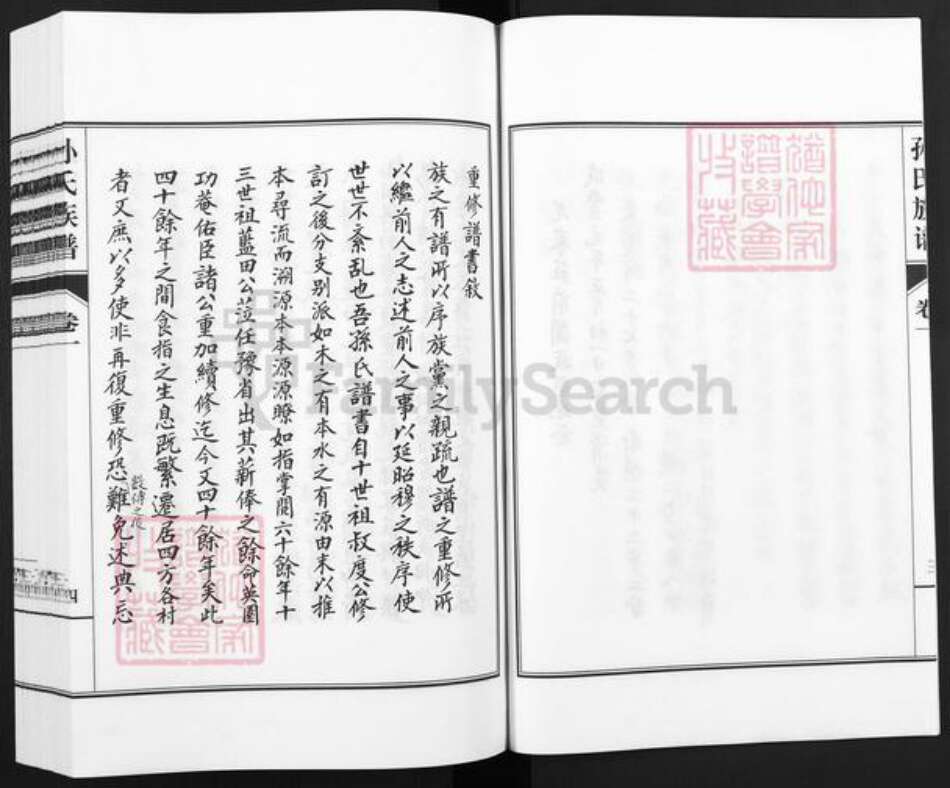 孙氏族谱
卷一
重修譜書敘
族之有譜所以序族黨之親疏也譜之重修所
以繼前人之志述前人之事以延昭穆之秩序使
世世不紊乱也吾孫氏譜書自十世祖叔度公修
訂之後分支别派如木之有本水之有源由末以推
本尋流而溯源本本源源瞭如指掌閱六十餘年十
三世祖藍田公蒞任豫省出其薪俸之餘命英園
功菴佑臣諸公重加續修迄今又四十餘年矣此
四十餘年之間食指之生息既繁遷居四方各村
者又庶以多使非再復重修恐數傳之後難免述典忘
孙氏族谱
卷一
四
FamilySearch